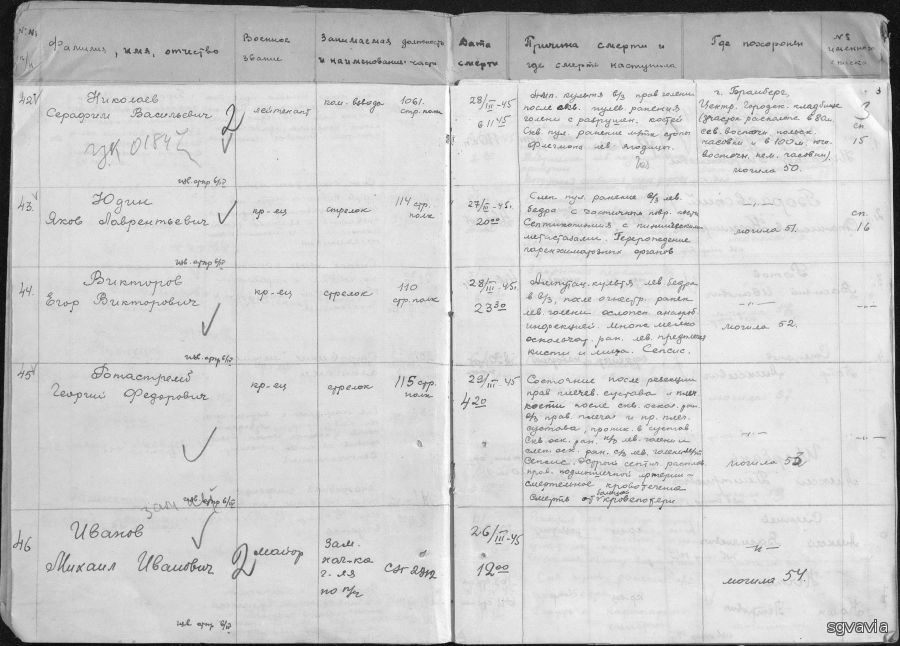 №№ п/п Фамилия, имя, отчество Военное звание Занимаемая должность и наименование части Дата смерти Причина смерти и где смерть наступила Где похоронен №№ именного списка
42 Николаев
Серафим Васильевич 2 лейтенант ком. взвода 1061. стр. полк
28/III-45
6 11 45
Амп. культя в/3 прав голени
после скв. пулев. ранения
голени с разрушен. костей
Скв. пул. ранение мягк
флегмона лев. ягодицы.
г. Бромберг,
Центр. Городск. кладбище
сев. восточн. польск.
часовни и в 100 м. юго
восточн. нем. часовни).
могила 50.
3
сп.
15
изв. отпр 6/IV
43. Юдин
Яков Лаврентьевич кр-ец стрелок 114 стр. полк
27/III-45г.
20 00
Слеп. пул. ранение в/3 лев.
бедра с частичным повр. кости
Септикопиэмия с пиэмическими
метастазами. Перерождение
паренхиматозных органов
-"-
могила 51.
сп.
16
изв. отпр 6/IV
44. Викторов
Егор Викторович кр-ец стрелок 110 стр. полк
28/III-45г.
23 30
Ампутац. культя лев бедра
в в/3, после огнестр. ранен
лев. голени осложн. анаэроб.
инфекцией. Множ мелко
осколочн ран. лев. предплечья
кисти и лица. Сепсис.
-"-
могила 52.
-"-
изв. отпр 6/IV
45
Георгий Федорович кр-ец стрелок 115 стр. полк
29/III-45
4 20
Состояние после резекции
прав плечев. сустава и плеч
кости после скв. оскол. ран.
в/3 прав. плеча и пр. плеч.
сустава, проник. в сустав
Скв. оск. ран. н/3 лев. голени и
слеп. оск. ран. с/3 лев. голени
Сепсис. Острой септич.
прав. подмышечной артерии -
смертельное кровотечение
Смерть от кровопотери
-"-
могила 53
-"-
изв. отпр 6/IV
46 Иванов
Михаил Иванович 2 майор
Зам.
нач-ка
по п/ч
26/III-45
12 00
-"-
могила 54.
изв. отпр 6/IV
sgvavia